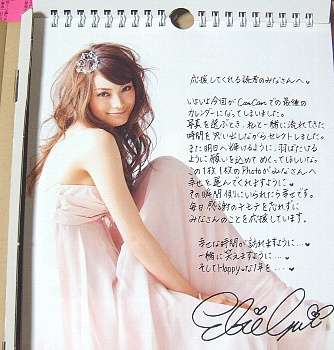 応援してくれる読者のみなさんへ
いよいよ今回がCanCamでの最後の
カレンダーになってしまいました。
写真を選ぶとき、私と一緒に流れてきた
時間を思い出しながらセレクトしました。
また明日へ輝けるように、羽ばたける
ように願いを込めてめくってほしいな。
この1枚1枚のPhotoがみなさんへ
幸せを運んでくれますように
その瞬間側にいられたら幸せです。
毎日感謝のキモチを忘れずに
みなさんのことを応援しています。
幸せな時間が訪れますように…
一緒に笑えますように…
そしてHappyな1年を…